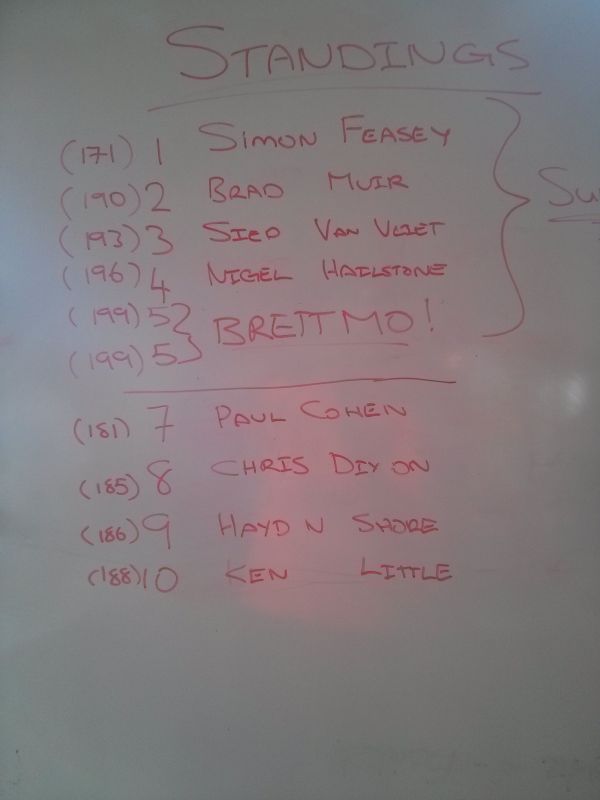 STANDINGS
(171) 1 SIMON FEASEY
(190) 2 BRAD MUIR
(193) 3 SIED VAN VLIET
(196) 4 NIGEL HAILSTONE
(199) 5
BRETTMO!
(199) 5
(181) 7 PAUL COHEN
(185) 8 CHRIS DIXON
(186) 9 HAYDN SHORE
(188) 10 KEN LITTLE